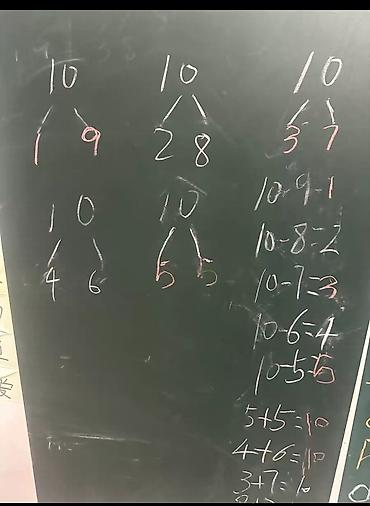 10 10 10
1 9 2 8 3 7
10-9=1
10 10
10-8=2
4 6 5 5
10-7=3
10-6=4
10-5=5
5+5=10
4+6=10
3+7=10